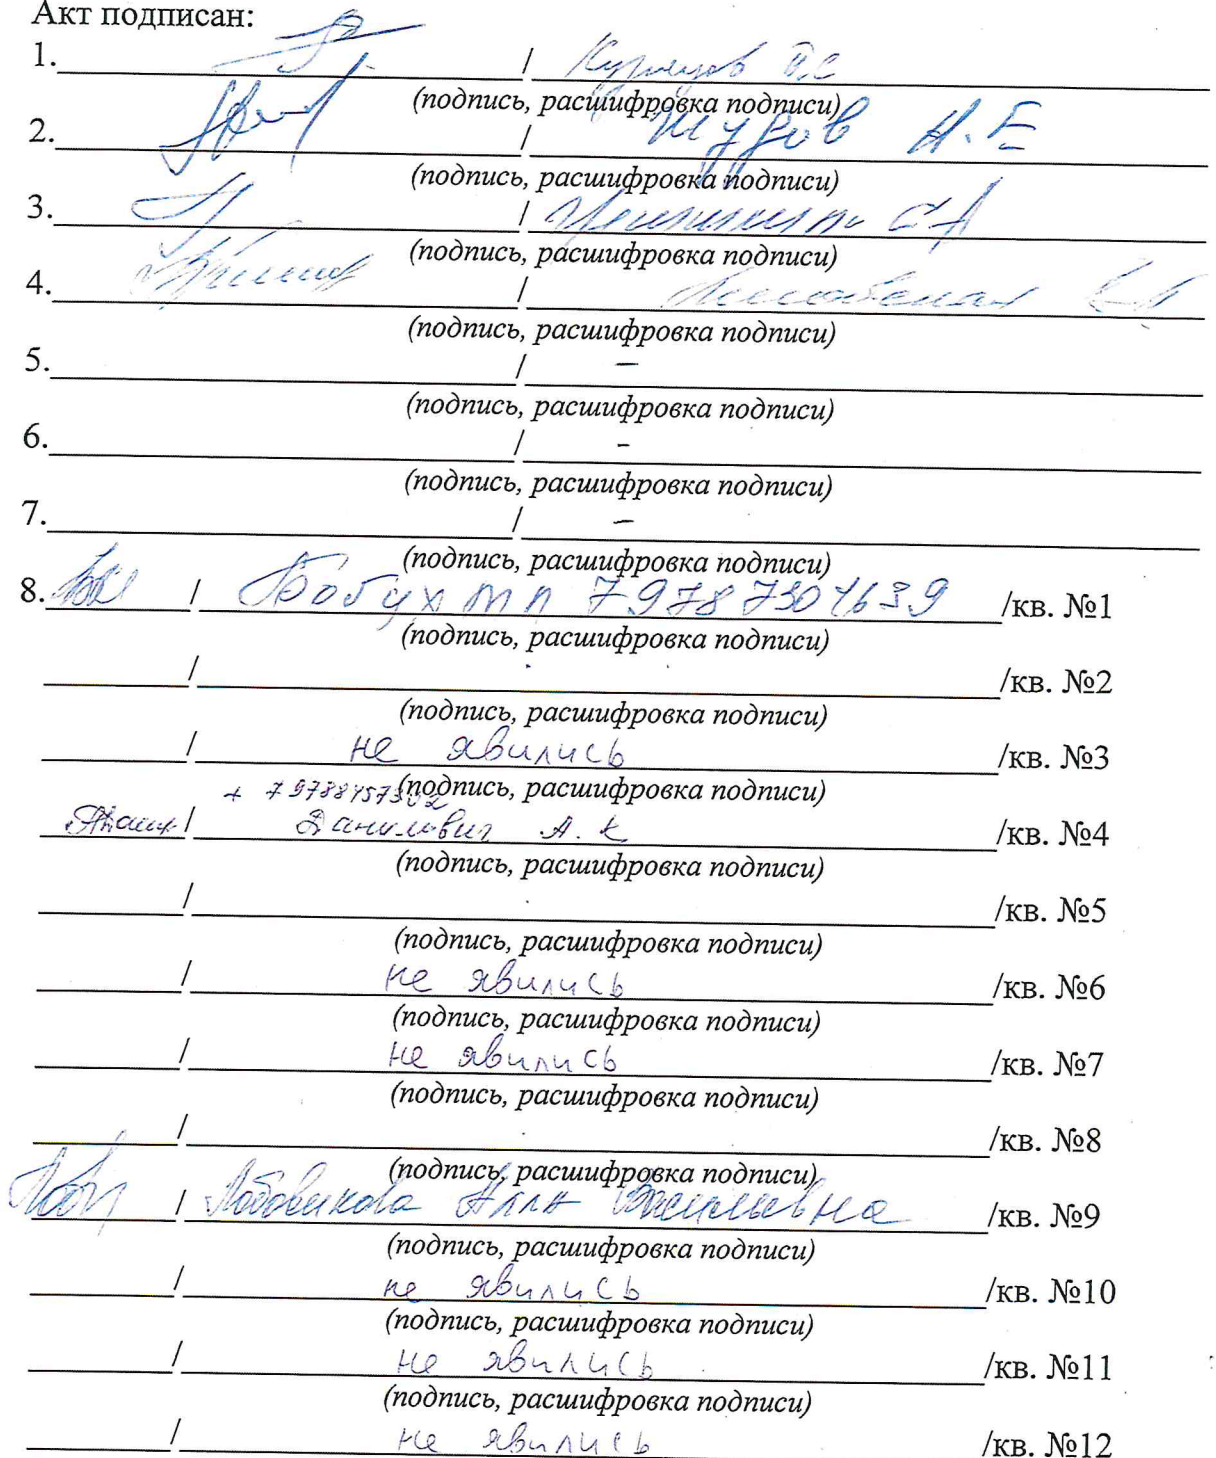 Акт подписан:
1. / Кузнецов В.С
(подпись, расшифровка подписи)
2. / Шуров Н.Е
(подпись, расшифровка подписи)
3. / С А
(подпись, расшифровка подписи)
4. /
(подпись, расшифровка подписи)
5. / –
(подпись, расшифровка подписи)
6. / -
(подпись, расшифровка подписи)
7. / –
(подпись, расшифровка подписи)
8. / Бобух М П /кв. №1
(подпись, расшифровка подписи)
/ /кв. №2
(подпись, расшифровка подписи)
/ не явились /кв. №3
(подпись, расшифровка подписи)
+ 79788457302
/ Данилович А. К /кв. №4
(подпись, расшифровка подписи)
/ /кв. №5
(подпись, расшифровка подписи)
/ не явились /кв. №6
(подпись, расшифровка подписи)
/ не явились /кв. №7
(подпись, расшифровка подписи)
/ /кв. №8
(подпись, расшифровка подписи)
/ Лобовикова Алла Васильевна /кв. №9
(подпись, расшифровка подписи)
/ не явились /кв. №10
(подпись, расшифровка подписи)
/ не явились /кв. №11
(подпись, расшифровка подписи)
/ не явились /кв. №12